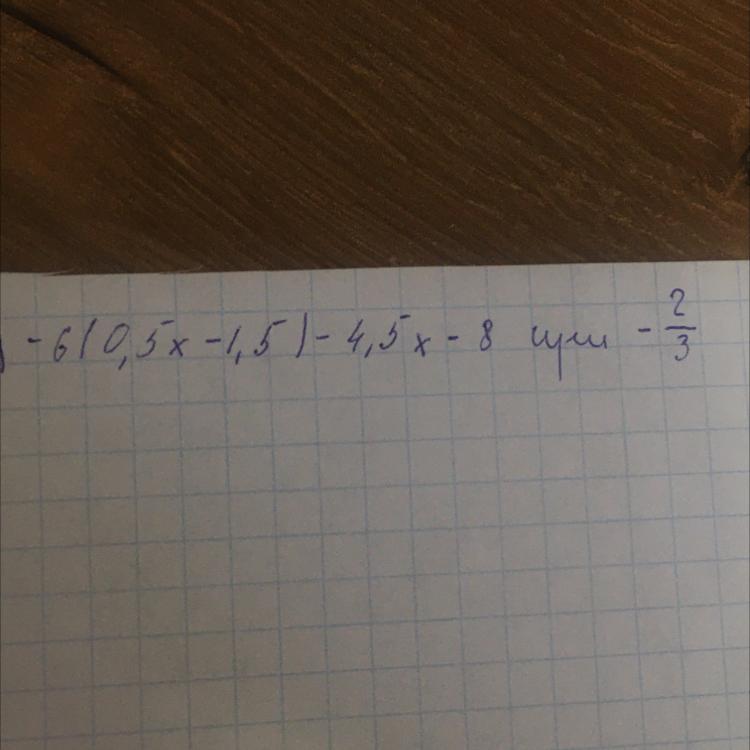 ) -6(0,5x -1,5) - 4,5x - 8 при -2/3